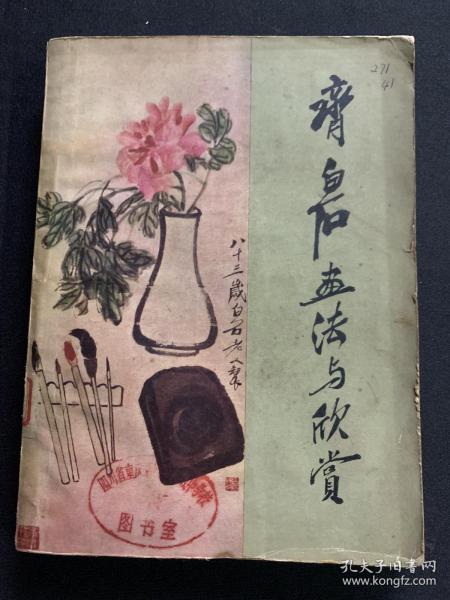 271
41
齊白石画法与欣赏
八十三歲白石老人製
四川省重
图书室
孔夫子旧书网
www.kongfz.com